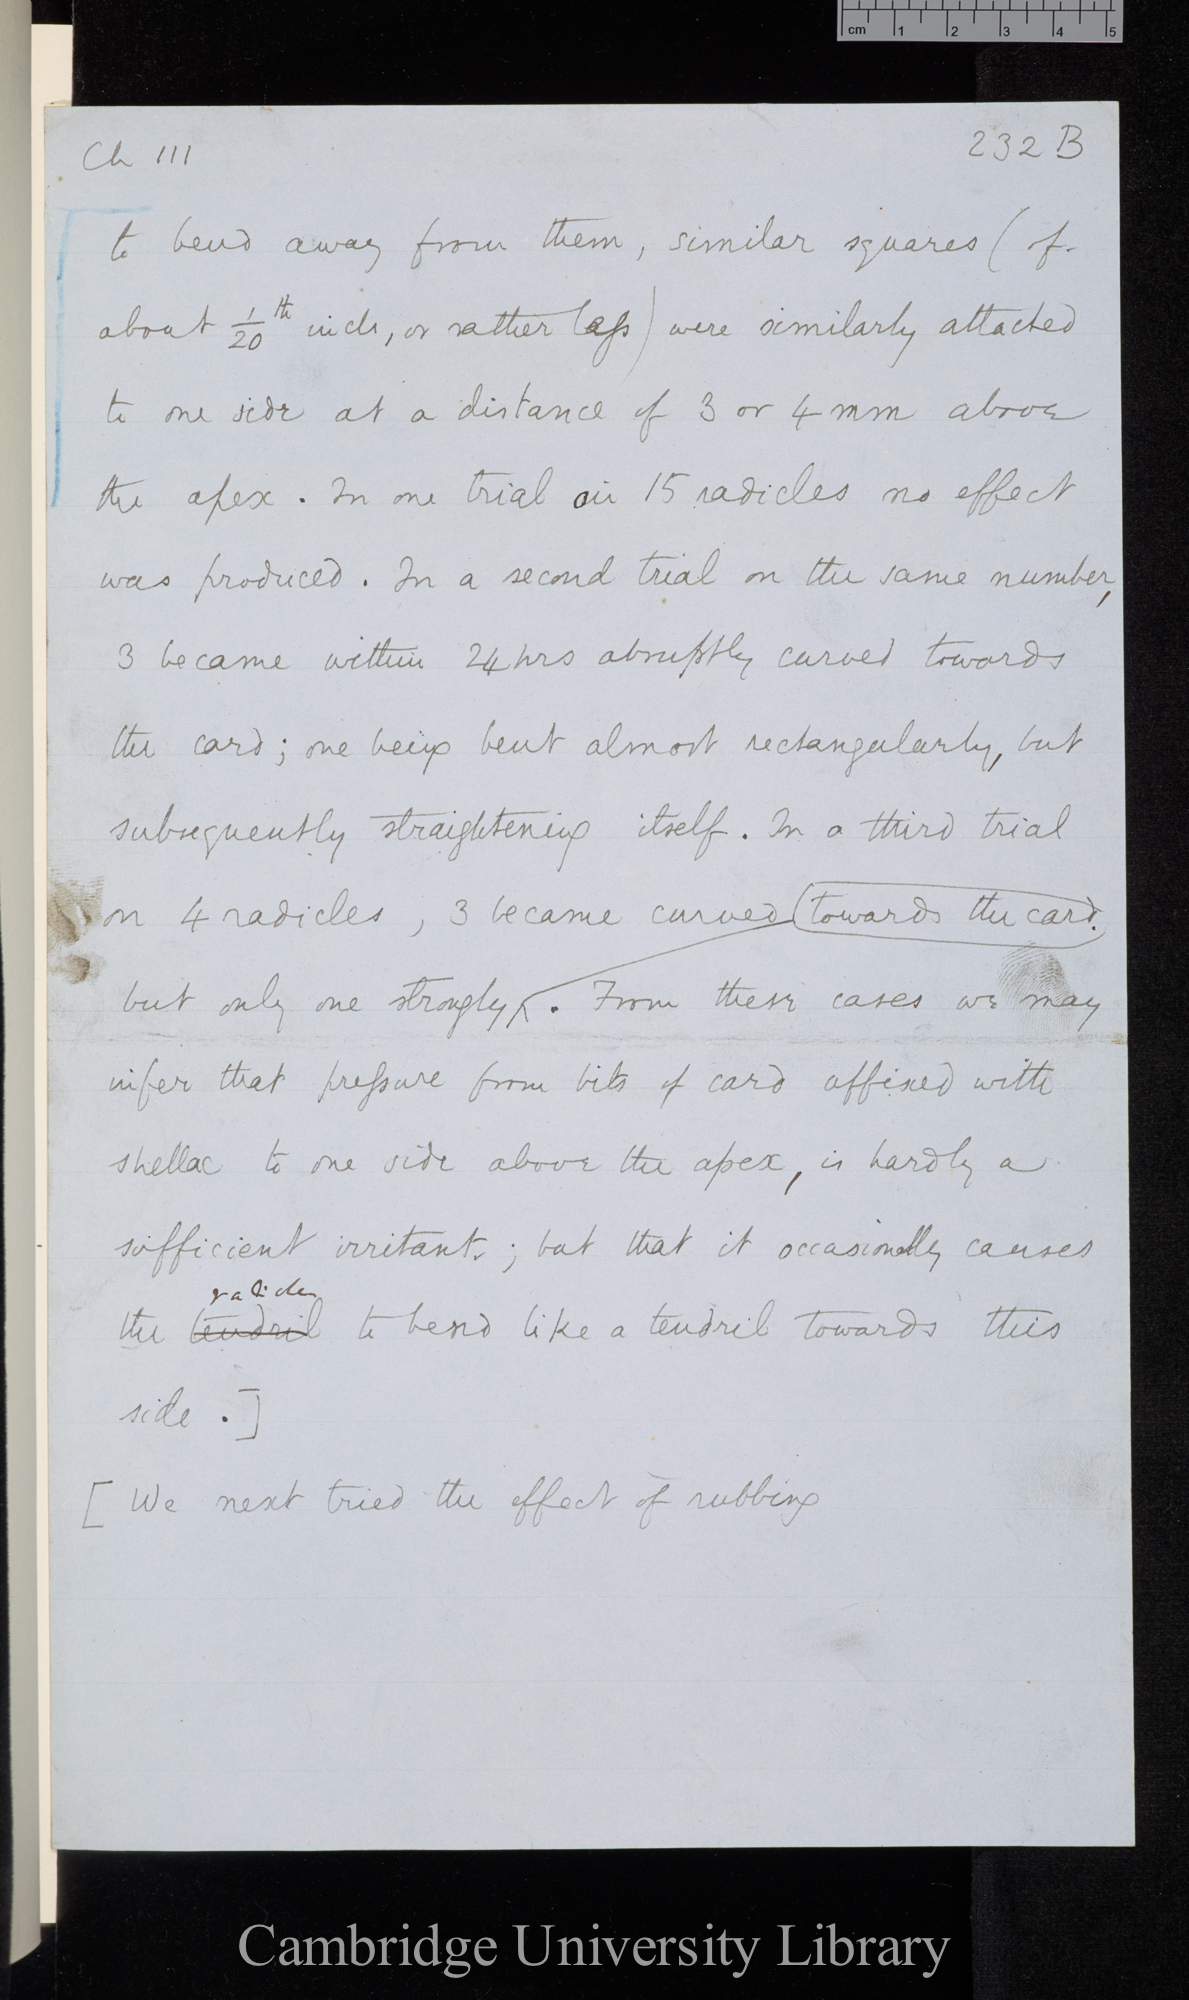 cm 1 2 3 4 5
Ch III
232 B
to bend away from them, similar squares (of
about 1/20th inch, or rather less) were similarly attached
to one side at a distance of 3 or 4 mm above
the apex. In one trial on 15 radicles no effect
was produced. In a second trial on the same number,
3 became within 24 hrs abruptly curved towards
the card; one being bent almost rectangularly, but
subsequently straightening itself. In a third trial
on 4 radicles, 3 became curved towards the card.
but only one strongly. From these cases we may
infer that pressure from bits of card affixed with
shellac to one side above the apex, is hardly a
sufficient irritant; but that it occasionally causes
radicle
the tendril to bend like a tendril towards this
side.]
[We next tried the effect of rubbing
Cambridge University Library